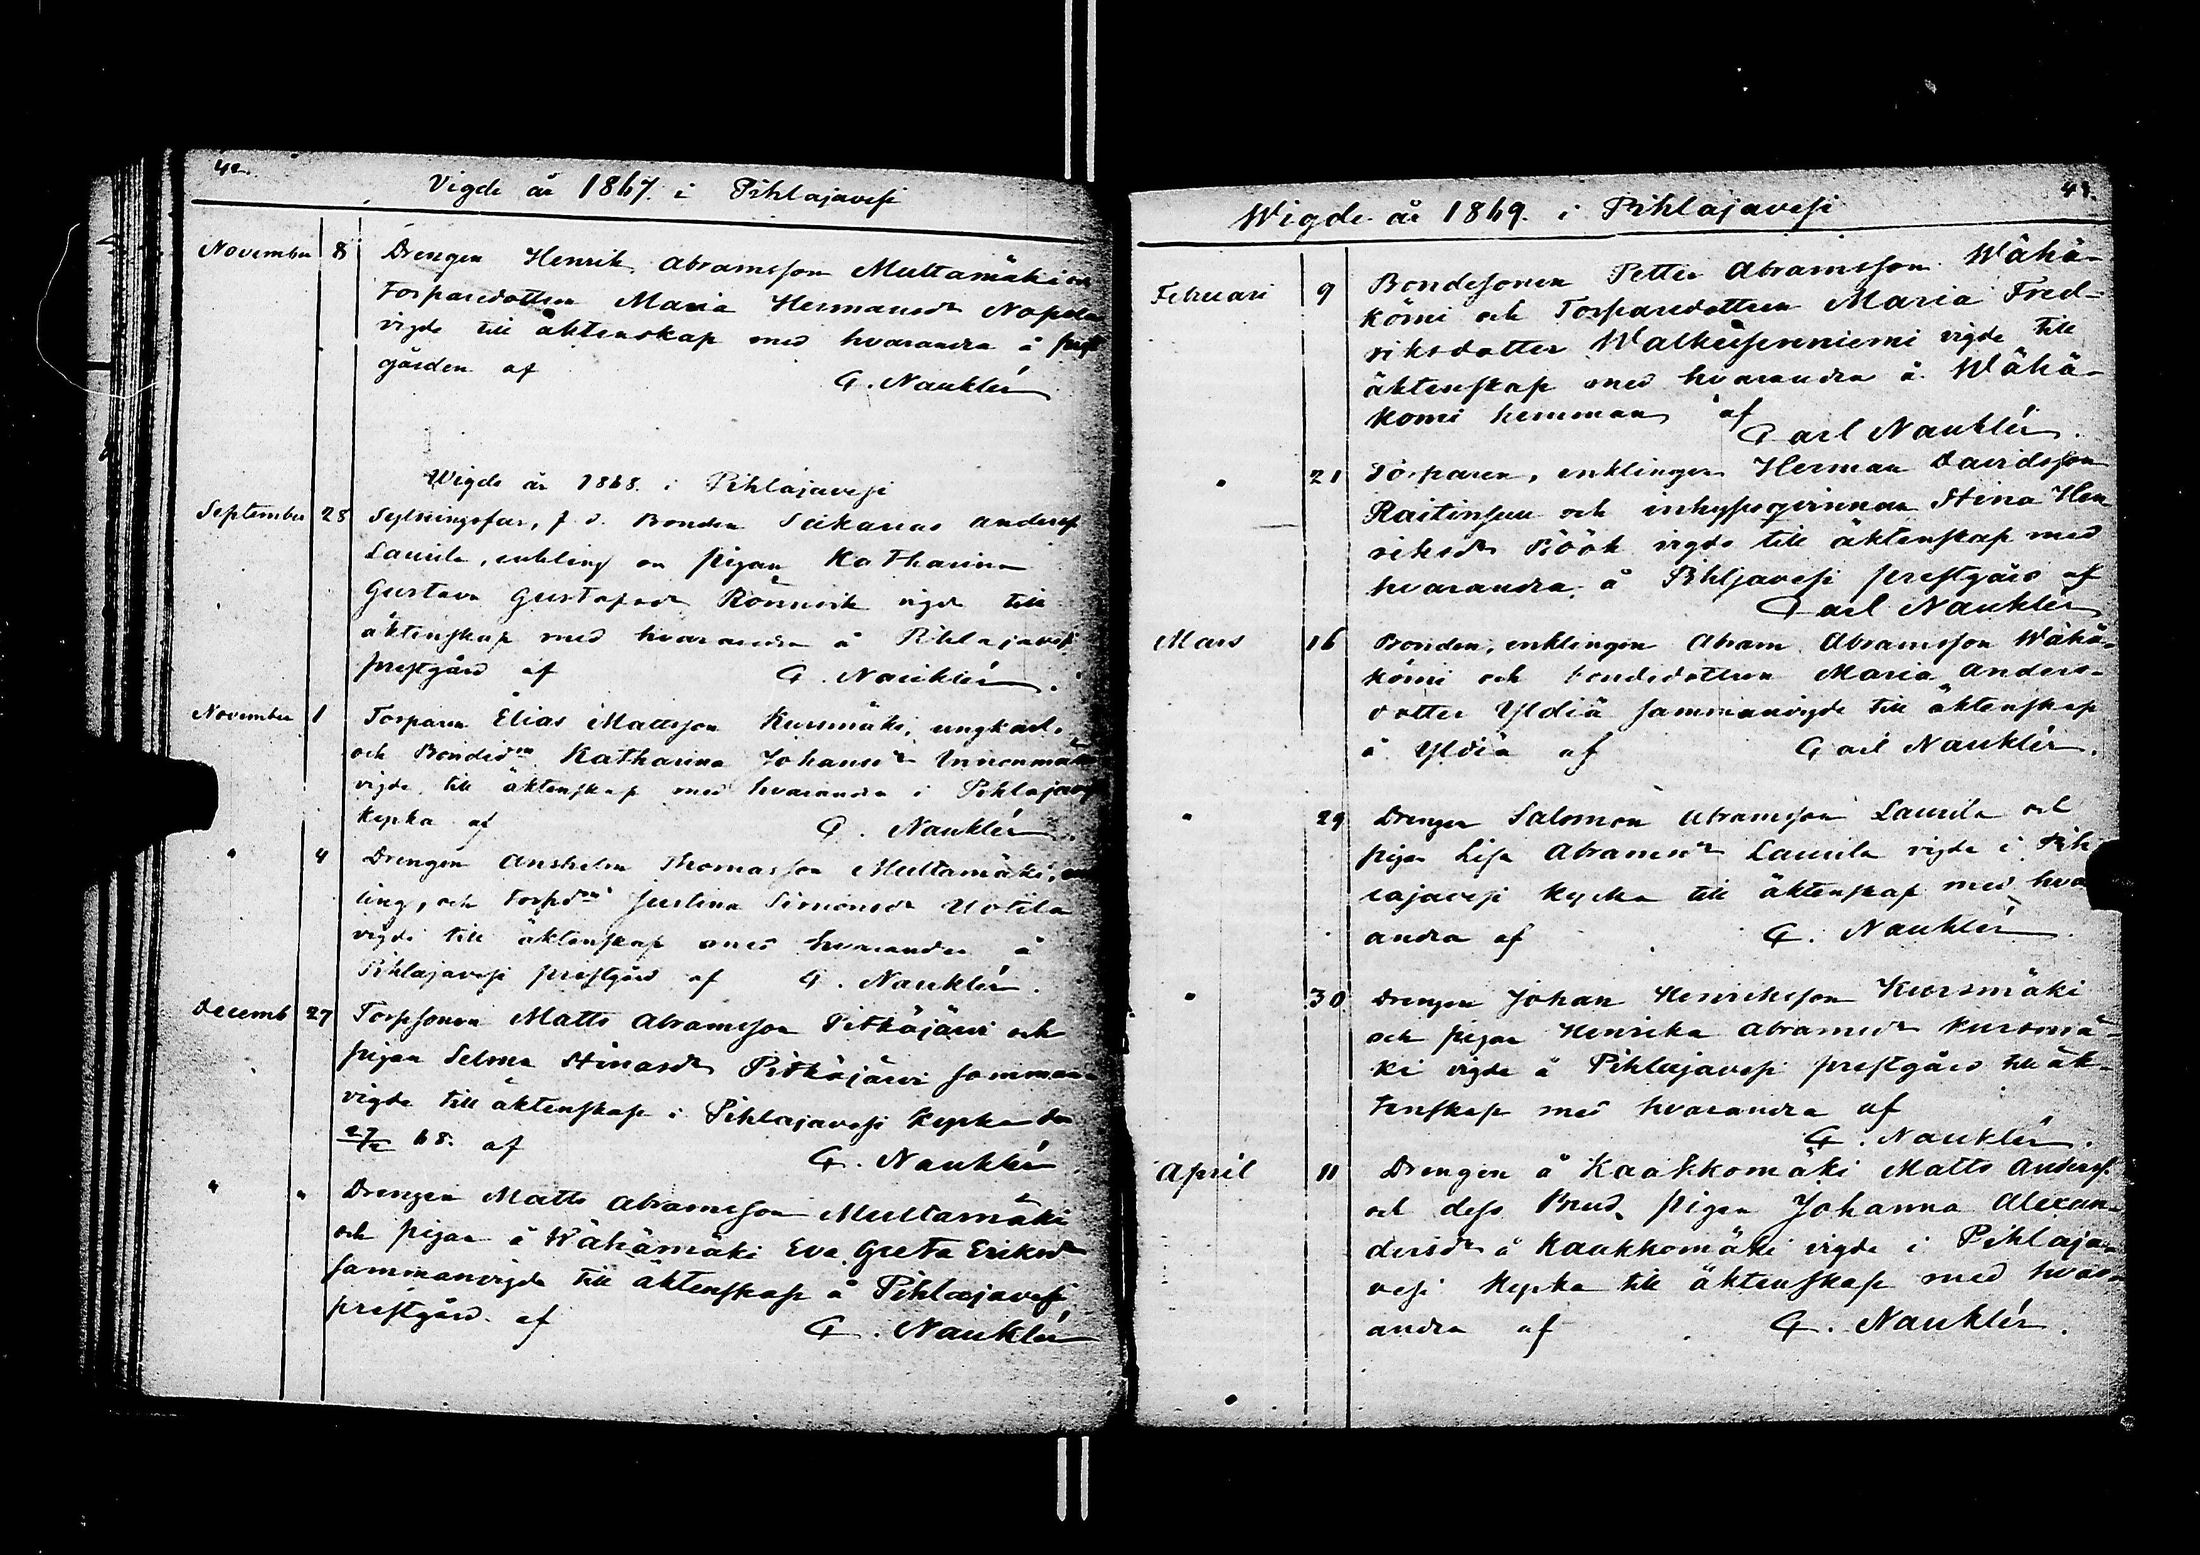 40.
Vigde år 1867. i Pihlajavesi
November 8 Drengen Henrik Abramsson Multamäki och
Torparedottren Maria Hermansdr Nopola
vigde till äktenskap med hvarandra å prest
gården af C. Nauklér
Wigde år 1868. i Pihlajavesi
September 28 Sytningsfar, f. d. Bonden Sakarias Andersf
Laurila, enkling och pigan Katharina
Gustava Gustafsdr Rönnvik vigde till
äktenskap med hvarandra å Pihlajavesi
prestgård af C. Nauklér.
November 1 Torparen Elias Mattsson Kursmäki, ungkarl,
och Bondedn Katharina Johansdr Innonmäki
vigde till äktenskap med hvarandra i Pihlajavesi
kyrka af C. Nauklér.
" 4 Drengen Anshelm Thomasson Multamäki, enk
ling, och torpdn Justina Simonsdr Uotila
vigde till äktenskap med hvarandra å
Pihlajavesi prestgård af C. Nauklér.
Decemb 27 Torpsonen Matts Abramsson Pitkäjärvi och
pigan Selma Stinasdr Pitkäjärvi samman
vigde till äktenskap i Pihlajavesi Kyrka den
27/12 68. af C. Nauklér
" " Drengen Matts Abramsson Multamäki
och pigan å Wähämäki Eva Greta Eriksdr
sammanvigde till äktenskap å Pihlajavesi
prestgård af C. Nauklér
41.
Wigde år 1869. i Pihlajavesi
Februari 9 Bondesonen Petter Abramsson Wähä-
kömi och Torparedottren Maria Fred-
riksdotter Walkeisenniemi vigde till
äktenskap med hvarandra å Wähä-
komi hemman af
Carl Nauklér.
" 21 Torparen, enklingen Herman Davidsson
Raitinsuu och inhysesqvinnan Stina Hen
riksdr Röök vigde till äktenskap med
hvarandra å Pihljavesi prestgård af
Carl Nauklér
Mars 16 Bonden, enklingen Abram Abramsson Wähä-
kömi och bondedottren Maria Anders-
dotter Yldiä sammanvigde till äktenskap
å Yldiä af Carl Nauklér.
" 29 Drengen Salomon Abramsson Laurila och
pigan Lisa Abramsdr Laurila vigde i Pih
lajavesi Kyrka till äktenskap med hvar
andra af C. Nauklér.
" 30 Drengen Johan Henriksson Kursmäki
och pigan Henrika Abramsdr Kursmä-
ki vigde å Pihlajavesi prestgård till äk-
tenskap med hvarandra af
C. Nauklér.
April 11 Drengen å Kaakkomäki Matts Andersf.
och dess Brud, pigan Johanna Alexan-
dersdr å Kaukkomäki vigde i Pihlaja-
vesi Kyrka till äktenskap med hvar-
andra af C. Nauklér.